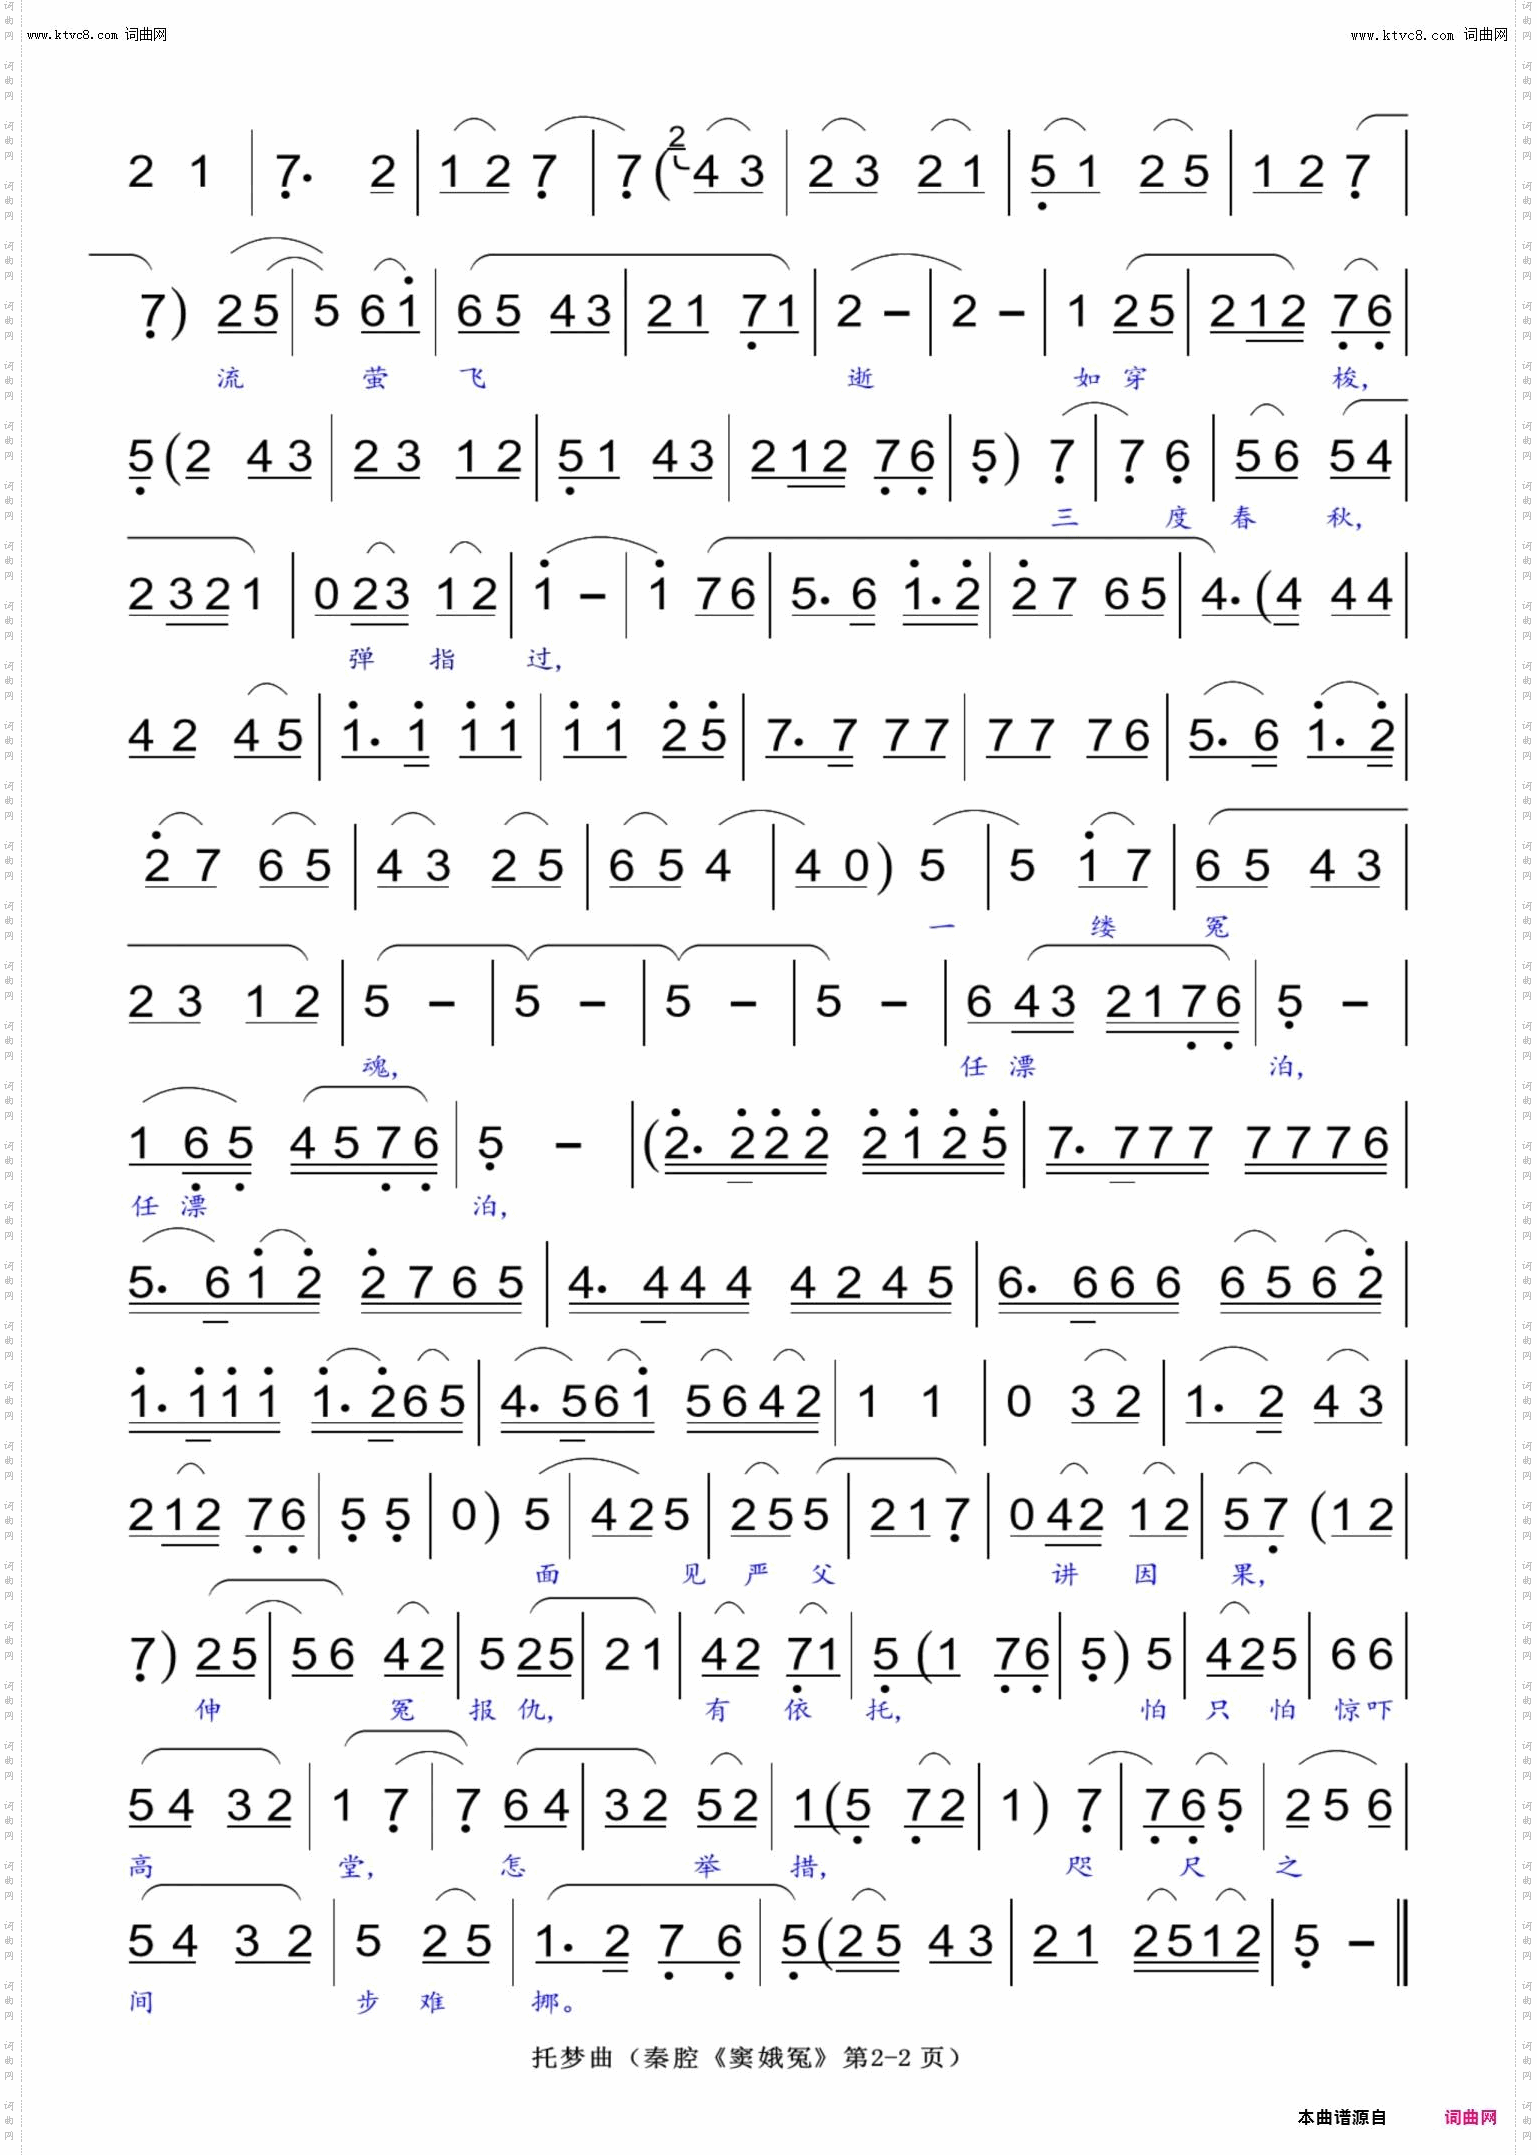 www.ktvc8.com 词曲网 www.ktvc8.com 词曲网
2 1 | 7. 2 | 1 2 7 | 7 ( 2 4 3 | 2 3 2 1 | 5 1 2 5 | 1 2 7 |
7 ) 2 5 | 5 6 1 | 6 5 4 3 | 2 1 7 1 | 2 – | 2 – | 1 2 5 | 2 1 2 7 6 |
流 萤 飞 逝 如 穿 梭,
5 ( 2 4 3 | 2 3 1 2 | 5 1 4 3 | 2 1 2 7 6 | 5 ) 7 | 7 6 | 5 6 5 4 |
三 度 春 秋,
2 3 2 1 | 0 2 3 1 2 | 1 – | 1 7 6 | 5. 6 1. 2 | 2 7 6 5 | 4. ( 4 4 4 |
弹 指 过,
4 2 4 5 | 1. 1 1 1 | 1 1 2 5 | 7. 7 7 7 | 7 7 7 6 | 5. 6 1. 2 |
2 7 6 5 | 4 3 2 5 | 6 5 4 | 4 0 ) 5 | 5 1 7 | 6 5 4 3 |
一 缕 冤
2 3 1 2 | 5 – | 5 – | 5 – | 5 – | 6 4 3 2 1 7 6 | 5 – |
魂, 任 漂 泊,
1 6 5 4 5 7 6 | 5 – | ( 2. 2 2 2 2 1 2 5 | 7. 7 7 7 7 7 7 6 |
任 漂 泊,
5. 6 1 2 2 7 6 5 | 4. 4 4 4 4 2 4 5 | 6. 6 6 6 6 5 6 2 |
1. 1 1 1 1. 2 6 5 | 4. 5 6 1 5 6 4 2 | 1 1 | 0 3 2 | 1. 2 4 3 |
2 1 2 7 6 | 5 5 | 0 ) 5 | 4 2 5 | 2 5 5 | 2 1 7 | 0 4 2 1 2 | 5 7 ( 1 2 |
面 见 严 父 讲 因 果,
7 ) 2 5 | 5 6 4 2 | 5 2 5 | 2 1 | 4 2 7 1 | 5 ( 1 7 6 | 5 ) 5 | 4 2 5 | 6 6 |
伸 冤 报 仇, 有 依 托, 怕 只 怕 惊 吓
5 4 3 2 | 1 7 | 7 6 4 | 3 2 5 2 | 1 ( 5 7 2 | 1 ) 7 | 7 6 5 | 2 5 6 |
高 堂, 怎 举 措, 咫 尺 之
5 4 3 2 | 5 2 5 | 1. 2 7 6 | 5 ( 2 5 4 3 | 2 1 2 5 1 2 | 5 – ‖
间 步 难 挪。
托梦曲（秦腔《窦娥冤》第2-2 页）
本曲谱源自 词曲网